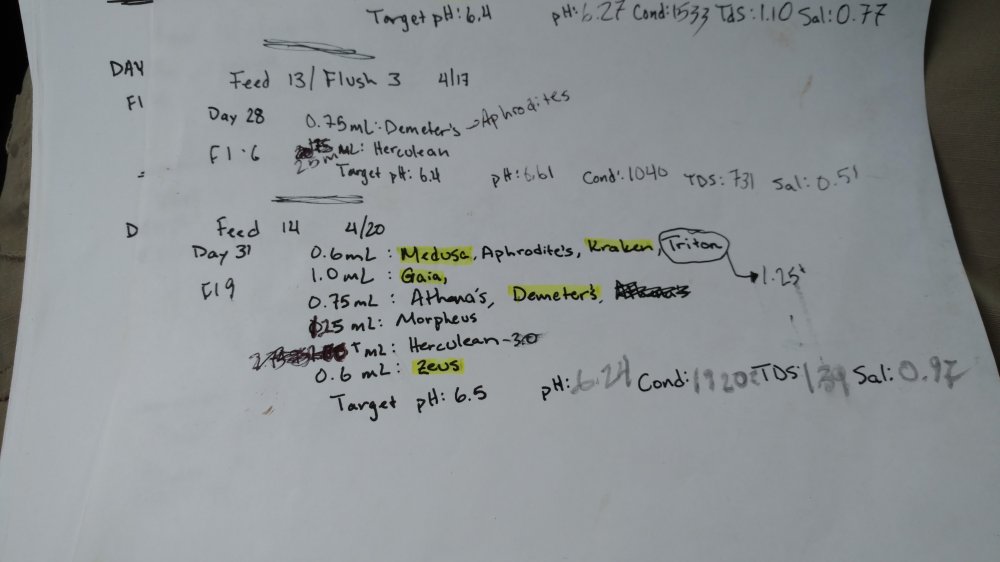 Target pH: 6.4 pH: 6.27 Cond: 1533 TdS: 1.10 Sal: 0.77
DAY Feed 13/ Flush 3 4/17
F1 Day 28 0.75 mL: Demeter's → Aphrodites
F1.6 mL: Herculean
Target pH: 6.4 pH: 6.61 Cond: 1040 TDS: 731 Sal: 0.51
D Feed 14 4/20
Day 31 0.6 mL: Medusa, Aphrodite's, Kraken, Triton
1.0 mL: Gaia, 1.25
F19 0.75 mL: Athena's, Demeter's,
mL: Morpheus
mL: Herculean - 3.0
0.6 mL: Zeus
Target pH: 6.5 pH: 6.24 Cond: 1920 TDS Sal: 0.97